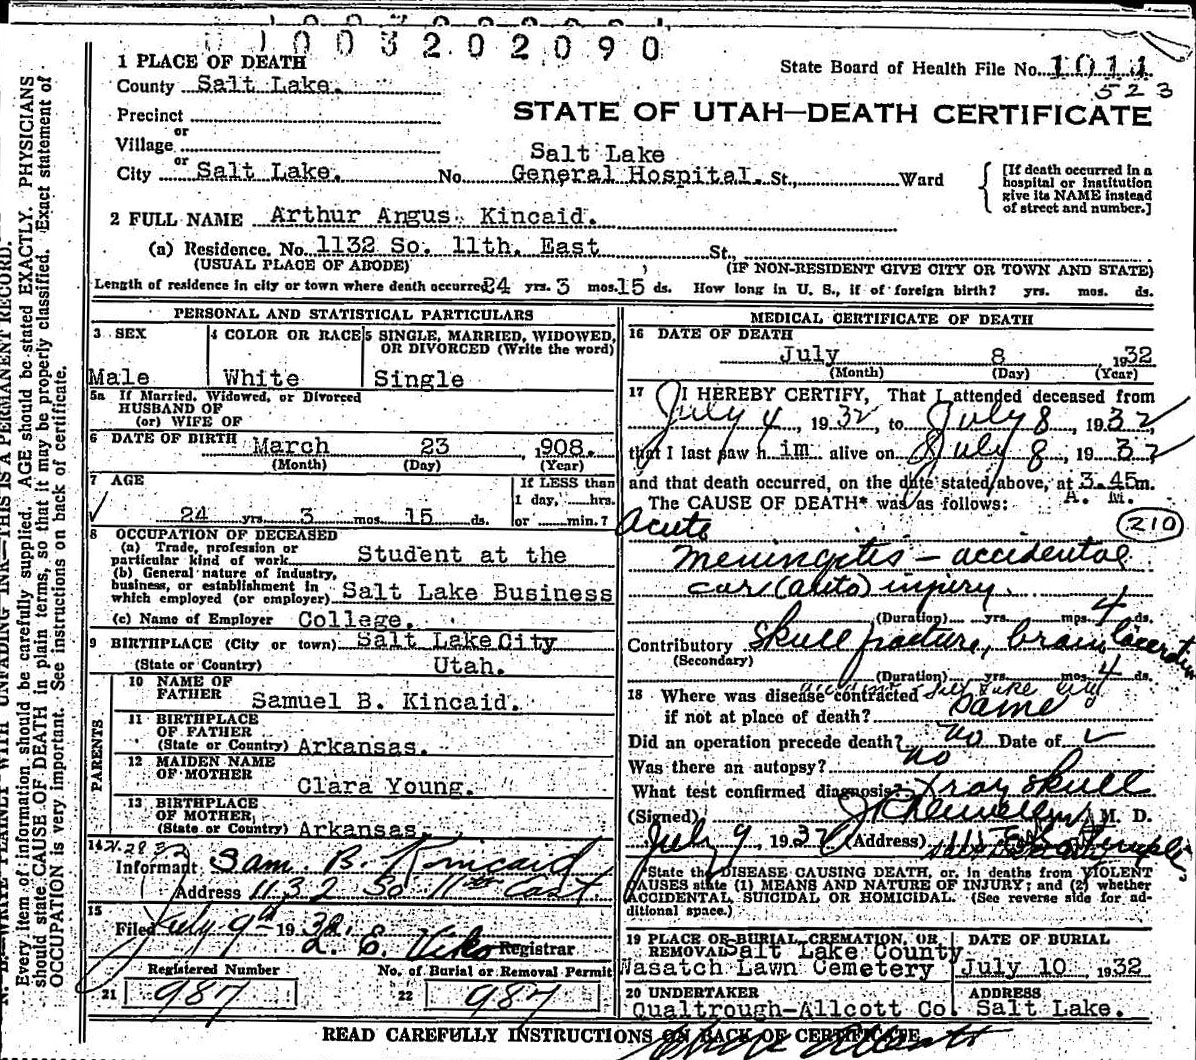 1003202090
1 PLACE OF DEATH
State Board of Health File No. 1011
523
County Salt Lake.
STATE OF UTAH—DEATH CERTIFICATE
Precinct
or
Village
or
Salt Lake
City Salt Lake. No. General Hospital. St., Ward
[If death occurred in a hospital or institution give its NAME instead of street and number.]
2 FULL NAME Arthur Angus Kincaid.
(a) Residence. No. 1132 So. 11th. East St.,
(USUAL PLACE OF ABODE) (IF NON-RESIDENT GIVE CITY OR TOWN AND STATE)
Length of residence in city or town where death occurred 24 yrs. 3 mos. 15 ds. How long in U. S., if of foreign birth? yrs. mos. ds.
PERSONAL AND STATISTICAL PARTICULARS
3 SEX
Male
4 COLOR OR RACE
White
5 SINGLE, MARRIED, WIDOWED,
OR DIVORCED (Write the word)
Single
5a If Married, Widowed, or Divorced
HUSBAND OF
(or) WIFE OF
6 DATE OF BIRTH March 23, 1908.
(Month) (Day) (Year)
7 AGE
24 yrs. 3 mos. 15 ds.
If LESS than
1 day, hrs.
or min.?
8 OCCUPATION OF DECEASED
(a) Trade, profession or
particular kind of work Student at the
(b) General nature of industry,
business, or establishment in
which employed (or employer) Salt Lake Business
(c) Name of Employer College.
9 BIRTHPLACE (City or town) Salt Lake City
(State or Country) Utah.
PARENTS
10 NAME OF
FATHER Samuel B. Kincaid.
11 BIRTHPLACE
OF FATHER
(State or Country) Arkansas.
12 MAIDEN NAME
OF MOTHER
Clara Young.
13 BIRTHPLACE
OF MOTHER
(State or Country) Arkansas.
14
Informant Sam. B. Kincaid
Address 1132 So 11th East
15
Filed July 9th 1932. L. E. Viko Registrar
Registered Number
21 987
No. of Burial or Removal Permit
22 987
MEDICAL CERTIFICATE OF DEATH
16 DATE OF DEATH
July 8 1932
(Month) (Day) (Year)
17 I HEREBY CERTIFY, That I attended deceased from
July 4, 1932, to July 8, 1932,
that I last saw him alive on July 8, 1932
and that death occurred, on the date stated above, at 3.45m.
A. M.
The CAUSE OF DEATH* was as follows:
Acute 210
meningitis — accidental
car (auto) injury
(Duration) yrs. mos. 4 ds.
Contributory Skull fracture, brain laceration
(Secondary)
(Duration) yrs. mos. 4 ds.
18 Where was disease contracted Salt Lake City
if not at place of death? Same
Did an operation precede death? no Date of
Was there an autopsy? no
What test confirmed diagnosis? Xray skull
(Signed) M. D.
July 9, 1932 (Address)
*State the DISEASE CAUSING DEATH, or, in deaths from VIOLENT
CAUSES state (1) MEANS AND NATURE OF INJURY; and (2) whether
ACCIDENTAL, SUICIDAL OR HOMICIDAL. (See reverse side for ad-
ditional space.)
19 PLACE OF BURIAL, CREMATION, OR
REMOVAL Salt Lake County
Wasatch Lawn Cemetery
DATE OF BURIAL
July 10, 1932
20 UNDERTAKER
Qualtrough-Allcott Co.
ADDRESS
Salt Lake.
READ CAREFULLY INSTRUCTIONS ON BACK OF CERTIFICATE
N. B.—WRITE PLAINLY WITH UNFADING INK—THIS IS A PERMANENT RECORD.
Every item of information should be carefully supplied. AGE should be stated EXACTLY. PHYSICIANS
should state CAUSE OF DEATH in plain terms, so that it may be properly classified. Exact statement of
OCCUPATION is very important. See instructions on back of certificate.